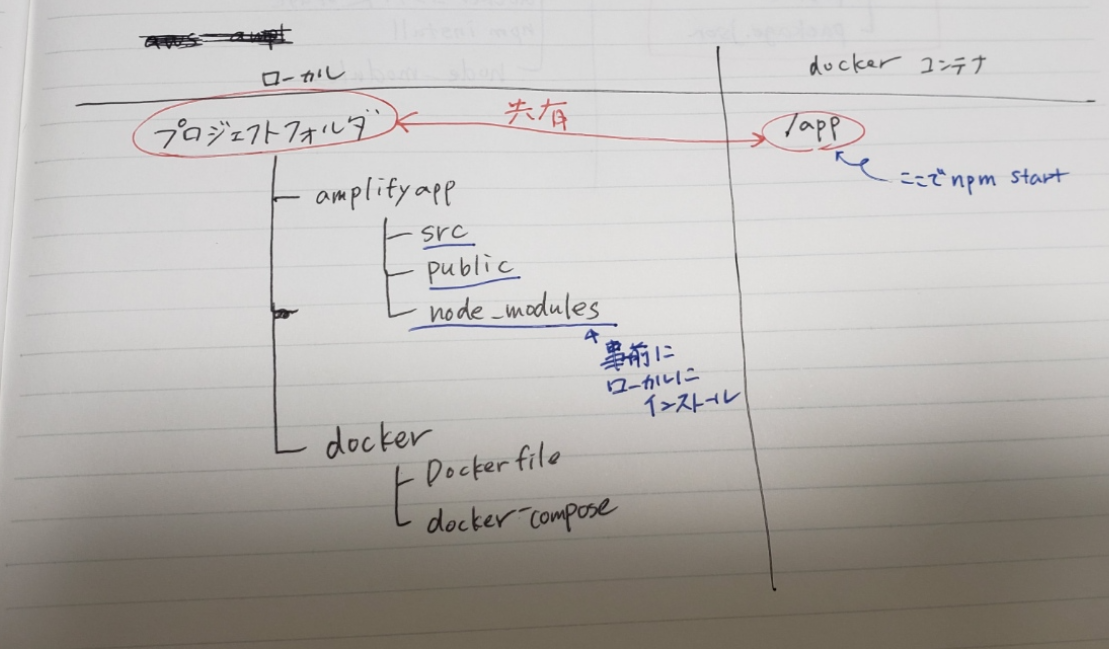 ローカル
docker コンテナ
プロジェクトフォルダ
共有
/app
ここで npm start
amplify app
src
public
node_modules
事前に
ローカルに
インストール
docker
Dockerfile
docker-compose